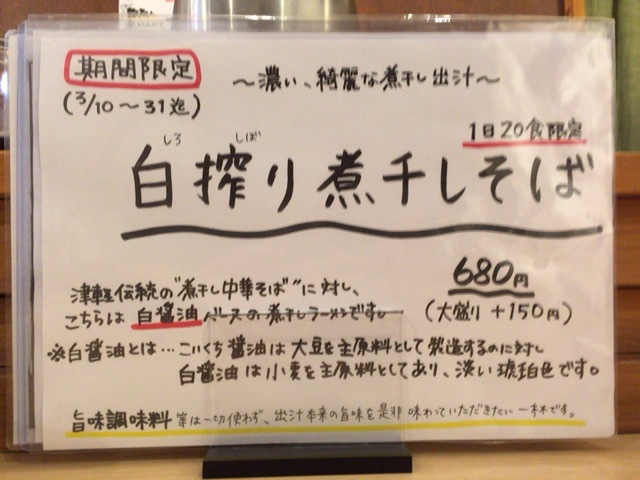 期間限定
(3/10～31迄)
～濃い、綺麗な煮干し出汁～
1日20食限定
しろ しぼ
白搾り煮干しそば
680円
(大盛り +150円)
津軽伝統の"煮干し中華そば"に対し、
こちらは 白醤油ベースの煮干しラーメンです。
※白醤油とは…こいくち醤油は大豆を主原料として製造するのに対し
白醤油は小麦を主原料としており、淡い琥珀色です。
旨味調味料等は一切使わず、出汁本来の旨味を是非味わっていただきたい一杯です。